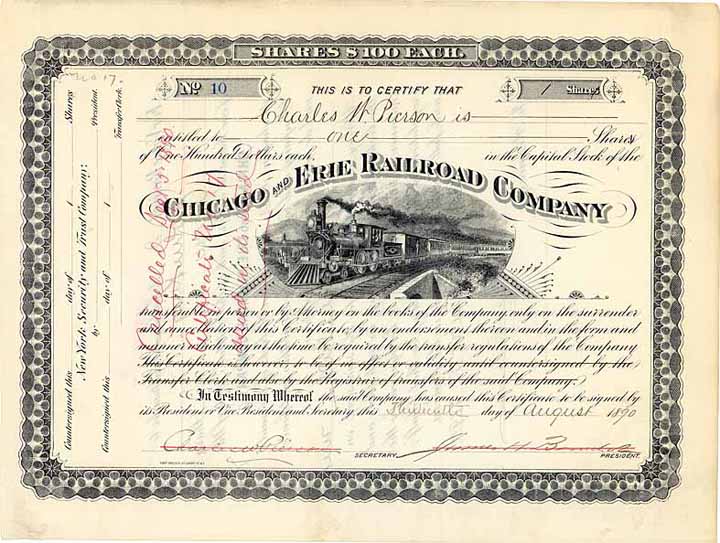 SHARES $100 EACH.
No 17.
No 10
THIS IS TO CERTIFY THAT
1 Shares
Charles W. Pierson is
entitled to one Shares
of One Hundred Dollars each, in the Capital Stock of the
CHICAGO AND ERIE RAILROAD COMPANY
transferable in person or by Attorney on the books of the Company only on the surrender
and cancellation of this Certificate by an endorsement thereon and in the form and
manner which may at the time be required by the transfer regulations of the Company
This Certificate is however, to be of no effect or validity until countersigned by the
Transfer Clerk and also by the Registrar of transfers of the said Company.
In Testimony Whereof the said Company has caused this Certificate to be signed by
its President or Vice President and Secretary this day of August 1890
Charles W Pierson
SECRETARY.
PRESIDENT.
Countersigned this day of 1 Shares
New York Security and Trust Company:
by President.
Countersigned this day of 1
Transfer Clerk.
Cancelled
Certificate No
issued in its stead